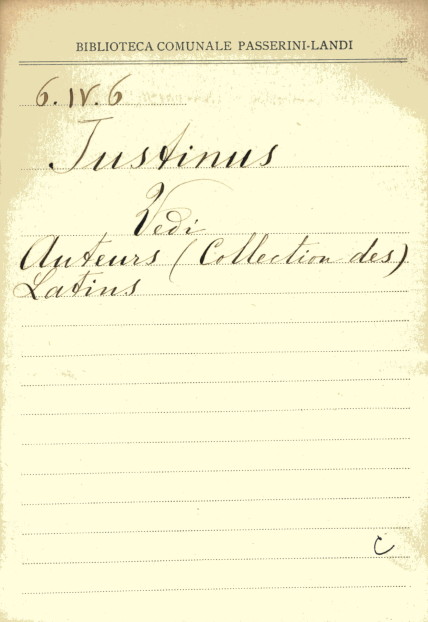 BIBLIOTECA COMUNALE PASSERINI-LANDI
6.IV.6
Justinus
Vedi
Auteurs (Collection des)
Latins
C